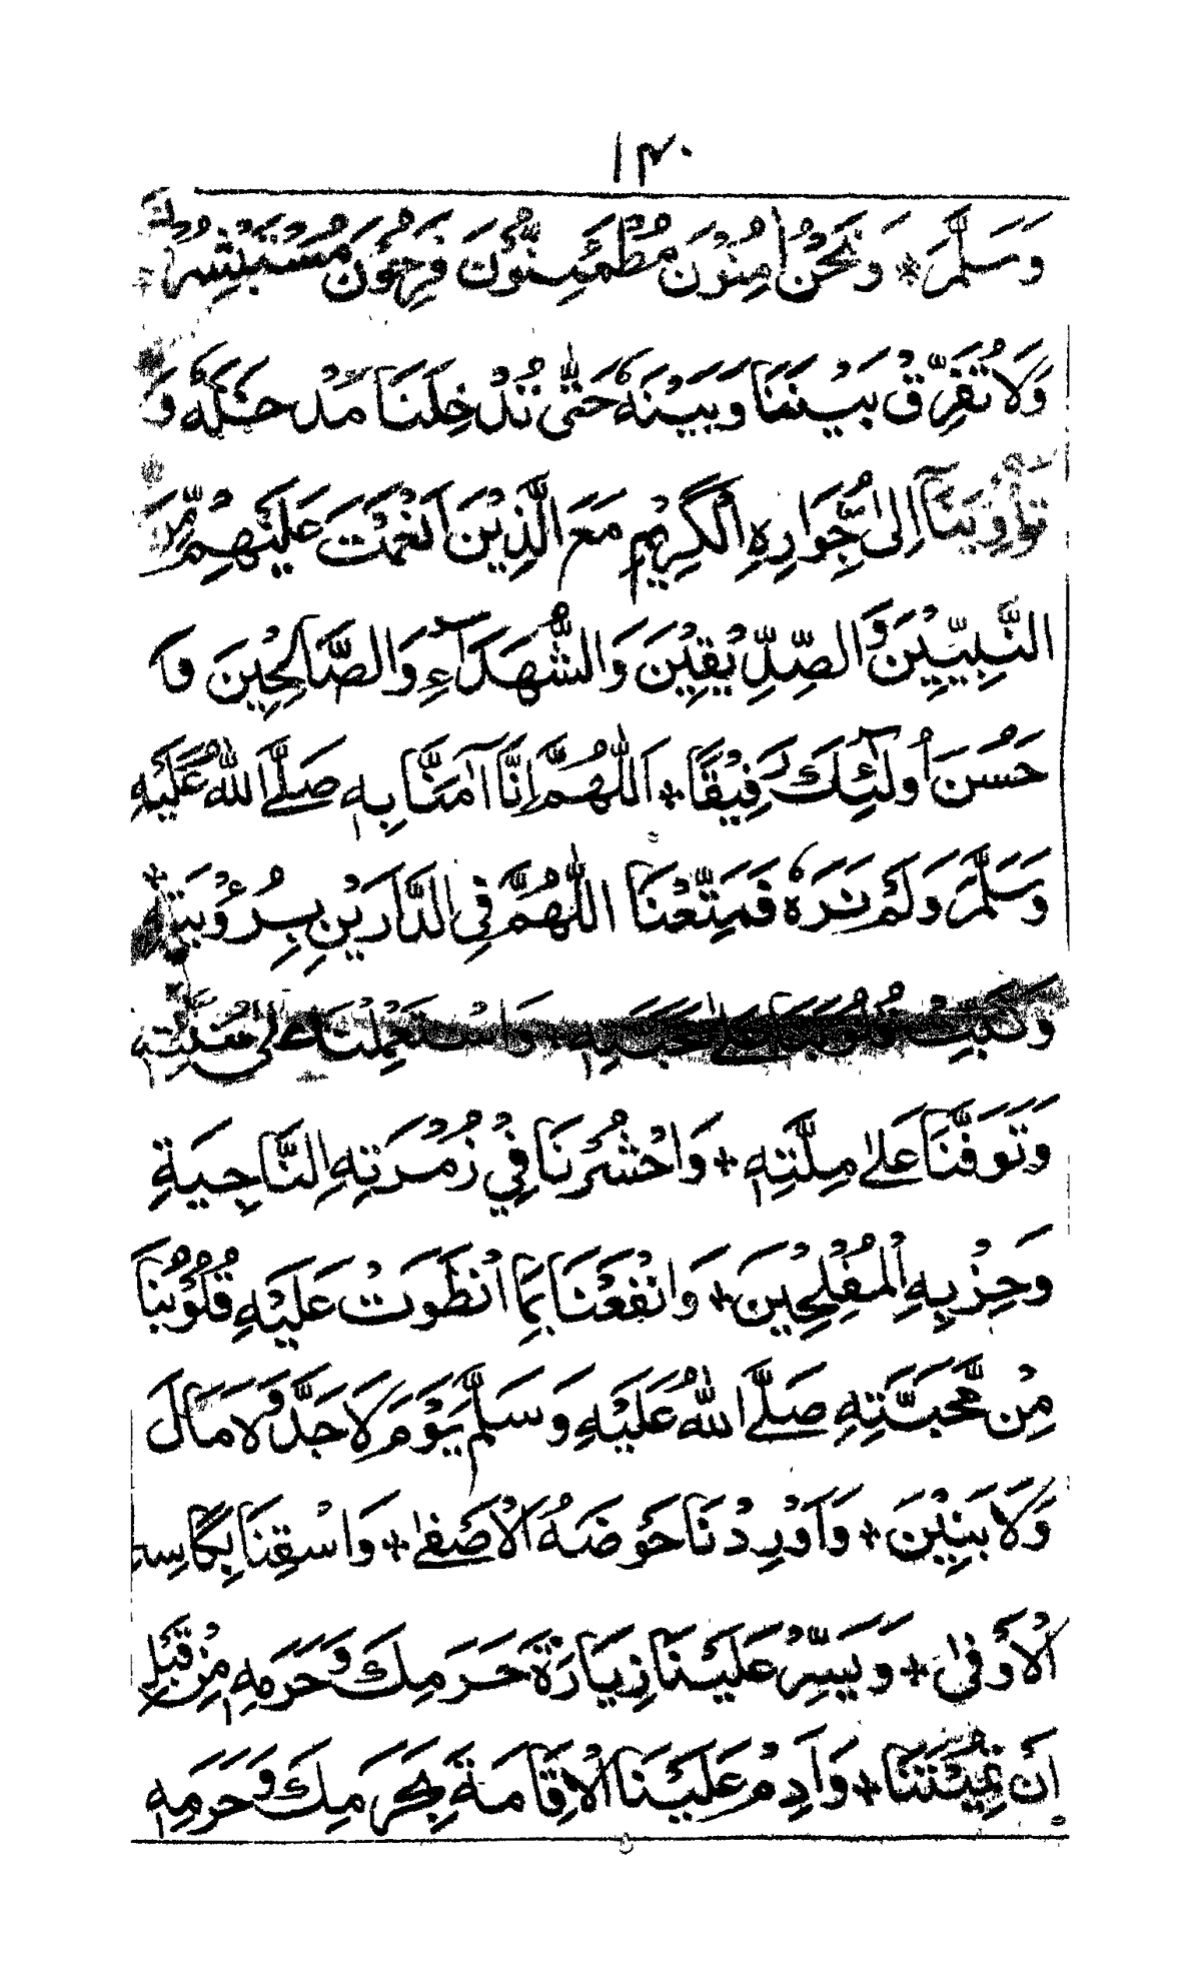 ١٣٠
وَسَلَّمَ * وَنَحْنُ اٰمِنُوْنَ مُطْمَئِنُّوْنَ فَرِحُوْنَ مُسْتَبْشِرُ
وَلَا تُفَرِّقْ بَيْنَنَا وَبَيْنَهٗ حَتّٰى تُدْخِلَنَا مَدْخَلَهٗ وَ
تُؤْوِيَنَآ اِلىٰ جِوَارِهِ الْكَرِيْمِ مَعَ الَّذِيْنَ اَنْعَمْتَ عَلَيْهِمْ مِّنَ
النَّبِيِّيْنَ وَالصِّدِّيْقِيْنَ وَالشُّهَدَآءِ وَالصَّالِحِيْنَ وَ
حَسُنَ اُولٰٓئِكَ رَفِيْقًا + اَللّٰهُمَّ اِنَّا اٰمَنَّا بِهٖ صَلَّى اللّٰهُ عَلَيْهِ
وَسَلَّمَ وَلَمْ نَرَهٗ فَمَتِّعْنَا اللّٰهُمَّ فِى الدَّارَيْنِ بِرُؤْيَتِهٖ +
وَثَبِّتْ قُلُوْبَنَا عَلىٰ مَحَبَّتِهٖ + وَاسْتَعْمِلْنَا عَلىٰ سُنَّتِهٖ
وَتَوَفَّنَا عَلىٰ مِلَّتِهٖ + وَاحْشُرْنَا فِيْ زُمْرَتِهِ النَّاجِيَةِ
وَحِزْبِهِ الْمُفْلِحِيْنَ + وَانْفَعْنَا بِمَا انْطَوَتْ عَلَيْهِ قُلُوْبُنَا
مِنْ مَّحَبَّتِهٖ صَلَّى اللّٰهُ عَلَيْهِ وَسَلَّمَ يَوْمَ لَا جَدَّ وَلَا مَالَ
وَلَا بَنِيْنَ + وَاَوْرِدْنَا حَوْضَهُ الْاَصْفىٰ + وَاسْقِنَا بِكَاْسِهِ
الْاَوْفىٰ + وَيَسِّرْ عَلَيْنَا زِيَارَةَ حَرَمِكَ وَحَرَمِهٖ مِنْ قَبْلِ
اَنْ تُمِيْتَنَا + وَاَدِمْ عَلَيْنَا الْاِقَامَةَ بِحَرَمِكَ وَحَرَمِهٖ